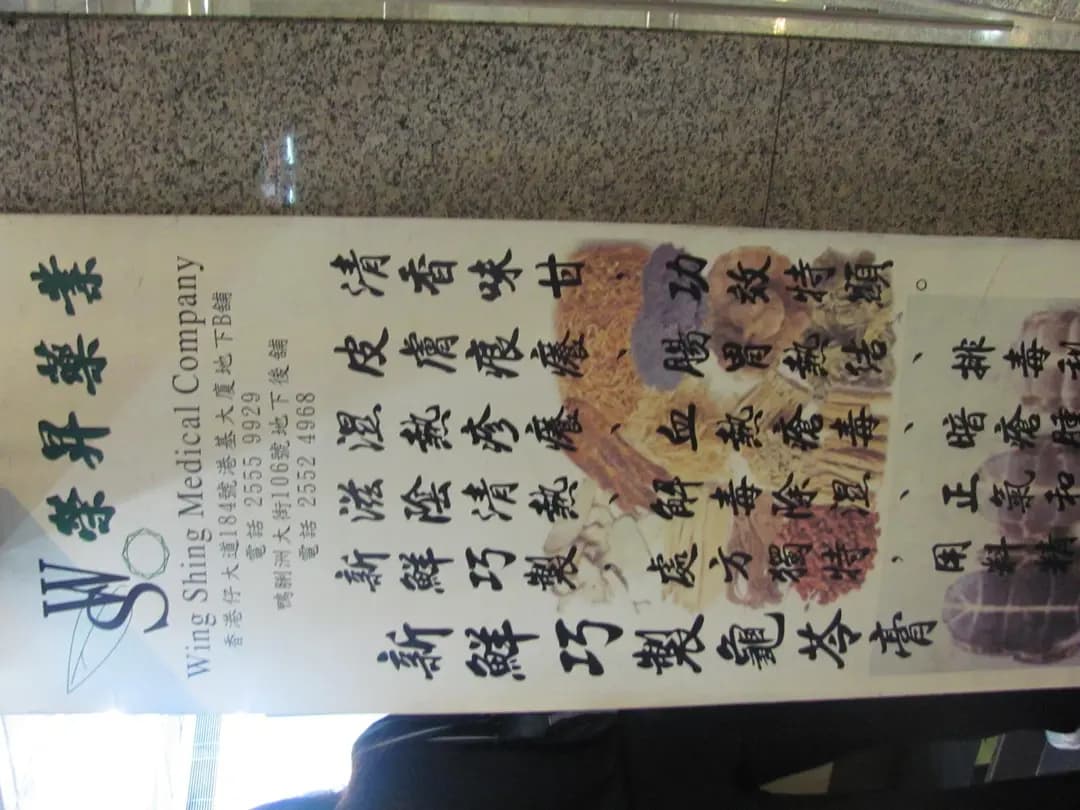 WS
榮昇藥業
Wing Shing Medical Company
香港仔大道184號港基大廈地下B舖
電話 2555 9929
鴨脷洲大街106號地下後舖
電話 2552 4968
新鮮巧製龜苓膏
新鮮巧製、處方獨特、用料精
滋陰清熱、解毒除濕、正氣和
濕熱疹癢、血熱瘡毒、暗瘡腫
皮膚痕癢、腸胃熱結、排毒利
清香味甘、功效特顯。